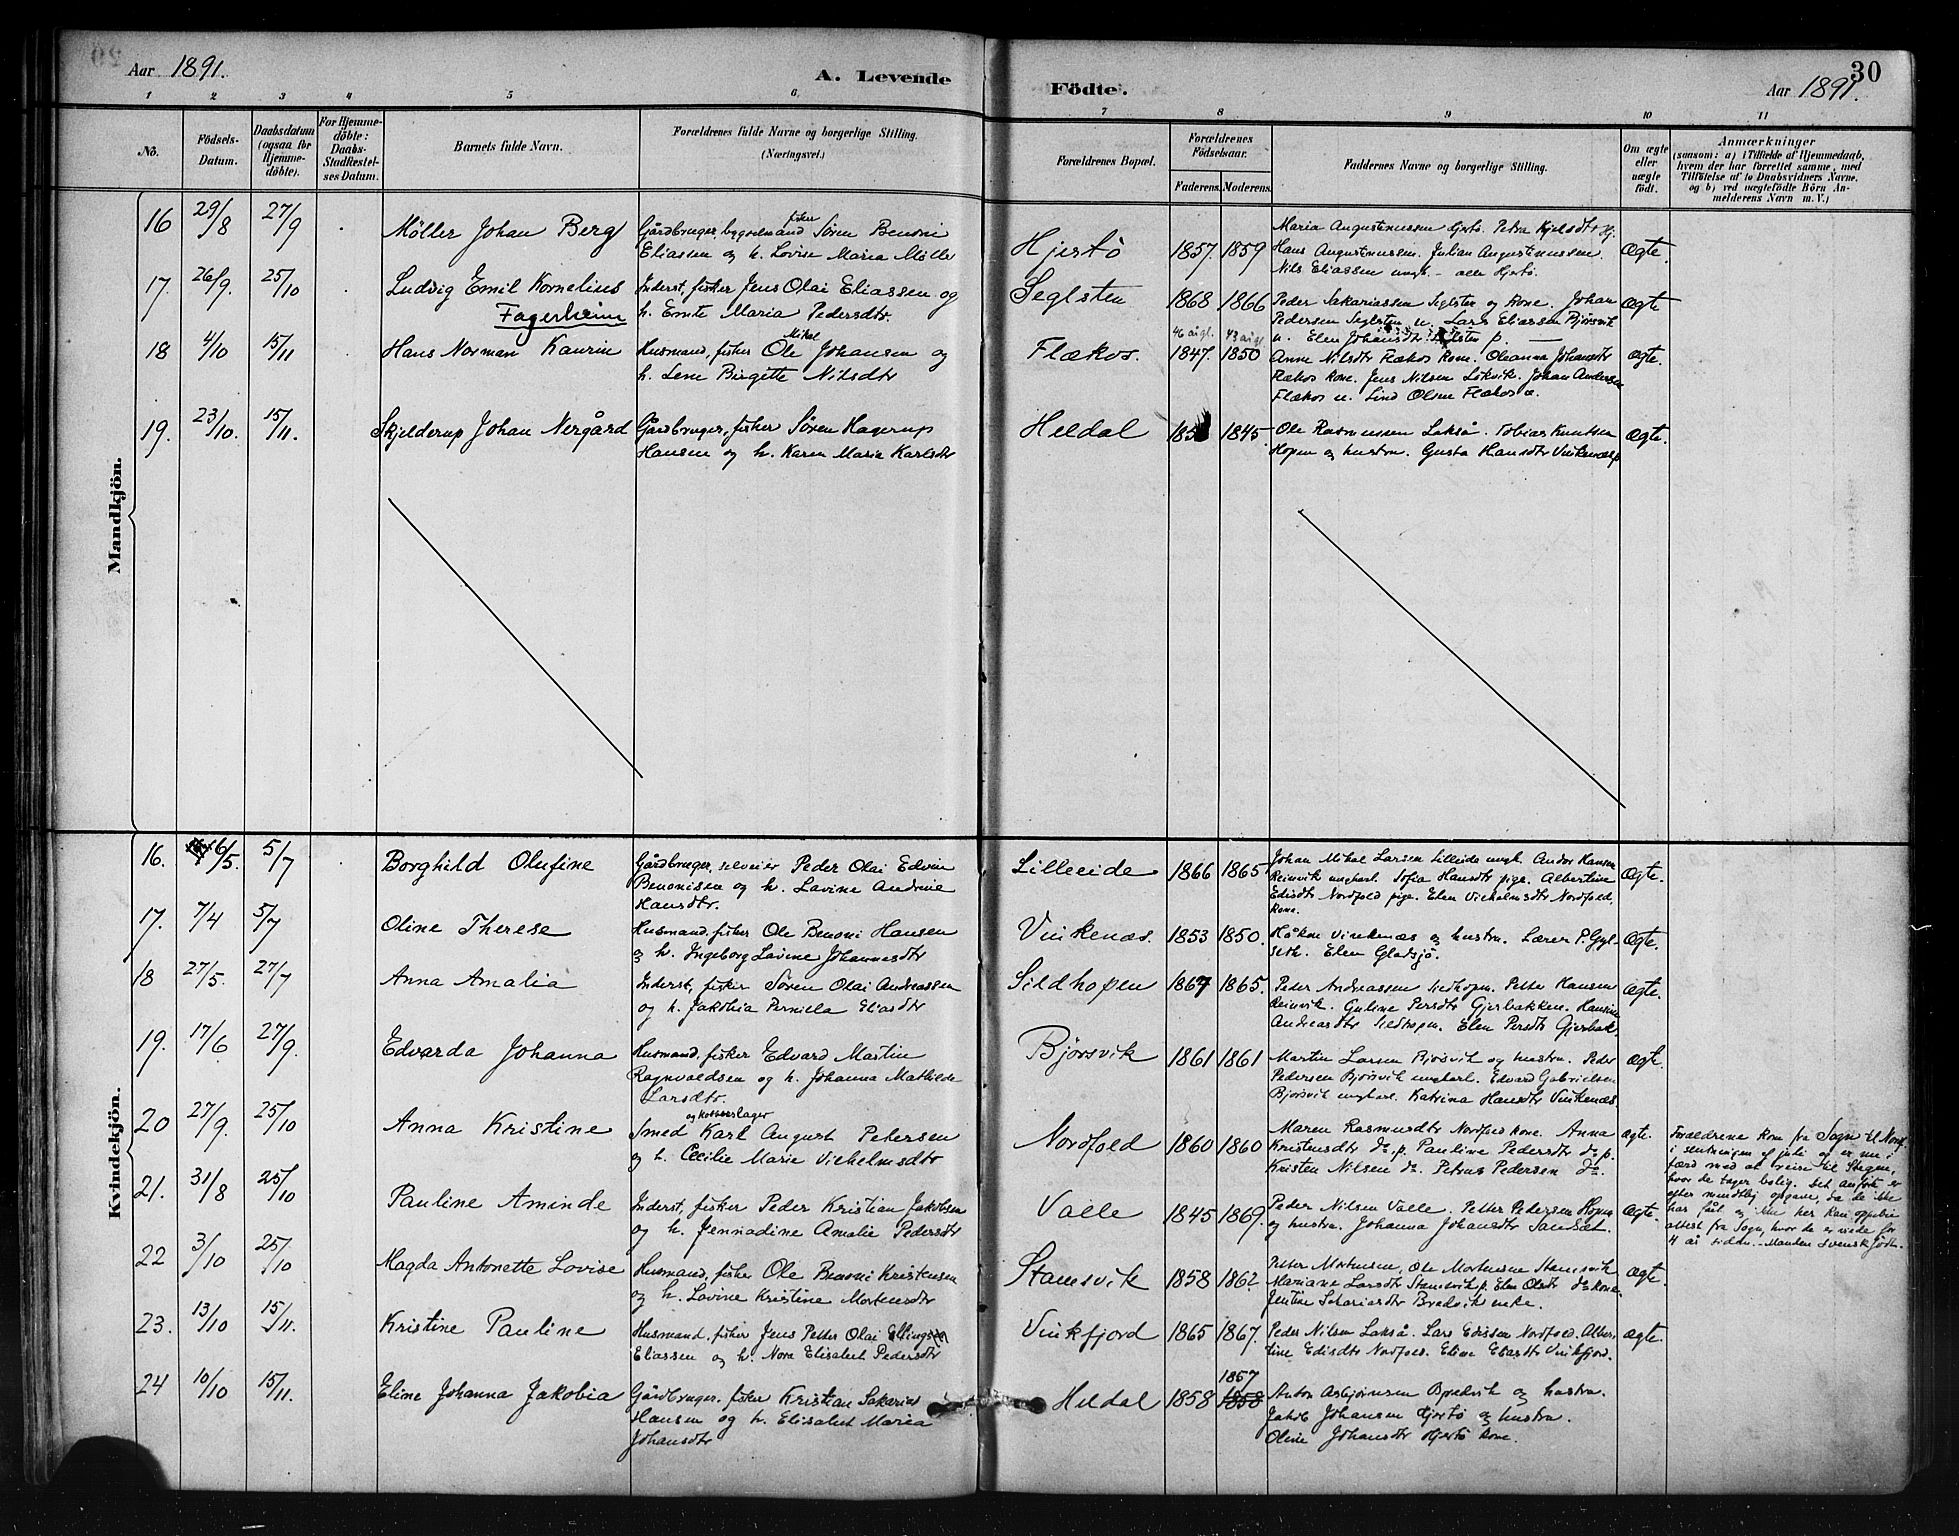 Aar 1891. A. Levende Födte. Aar 1891. 30
1 2 3 4 5 6 7 8 9 10 11
No.
Födsels-Datum.
Daabsdatum (ogsaa for Hjemme-döbte).
For Hjemme-döbte: Daabs-Stadfæstel-ses Datum.
Barnets fulde Navn.
Forældrenes fulde Navne og borgerlige Stilling. (Næringsvei.)
Forældrenes Bopæl.
Forældrenes Födselsaar.
Faderens. Moderens.
Faddernes Navne og borgerlige Stilling.
Om ægte eller uægte födt.
Anmærkninger
(saasom: a) i Tilfælde af Hjemmedaab, hvem der har forrettet samme, med Tilföielse af to Daabsvidners Navne, og b) ved uægtefödte Börn An-melderens Navn m. V.)
Mandkjön.
16 29/8 27/9 Møller Johan Berg
Gårdbruger, bygselmand fisker Søren Benoni
Eliassen og h. Lovise Maria Møller
Hjertø 1857. 1859
Maria Augustinussen Hjertø. Petra Kjelsdtr Hj.
Hans Augustinussen. Julian Augustinussen.
Nils Eliassen ungk. – alle Hjertø.
Ægte.
17. 26/9. 25/10 Ludvig Emil Kornelius
Fagerheim
Inderst, fisker Jens Olai Eliassen og
h. Emte Maria Pedersdtr.
Seglsten 1868 1866
Peder Sakariassen Seglsten og kone. Johan
Pedersen Seglsten u. Lars Eliassen Bjørsvik
u. Elen Johansdtr Seglsten p.
Ægte
18 4/10 15/11 Hans Norman Kaurin
Husmand, fisker Ole Mikal Johansen og
h. Lene Birgitte Nilsdtr
Flækos. 1847. 1850
Anne Nilsdtr Flækos kone. Oleanna Johansdtr
Flækos kone. Jens Nilsen Løkvik. Johan Andersen
Flækos u. Lind Olsen Flækos u.
ægte.
19. 23/10. 15/11. Skjelderup Johan Nergård
Gårdbruger, fisker Søren Hagerup
Hansen og h. Karen Maria Karlsdtr
Heldal 1845.
Ole Rasmussen Lakså. Tobias Knutsen
Hopen og hustru. Gusta Hansdtr Vinkenæs p
Ægte.
Kvindekjön.
16. 6/5. 5/7 Borghild Olufine
Gårdbruger, selveier Peder Olai Edvin
Benonisen og h. Lavine Andrine
Hansdtr.
Lilleeide 1866 1865
Johan Mikal Larsen Lilleeide ungk. Andor Hansen
Reinvik ungkarl. Sofia Hansdtr pige. Albertine
Edisdtr Nordfold pige. Elen Vilhelmsdtr Nordfold,
kone.
Ægte.
17. 7/4 5/7 Oline Therese
Husmand, fisker Ole Benoni Hansen
og h. Ingeborg Lavine Johannesdtr
Vinkenæs. 1853 1850.
Håkon Vinkenæs og hustru. Lærer P. Gyl-
seth. Elen Gladsjø.
Ægte.
18 27/5. 27/7 Anna Amalia
Inderst, fisker Søren Olai Andreassen
og h. Jakobia Pernilla Eliasdtr
Sildhopen 1867 1865.
Peder Andreassen Sildhopen. Petter Hansen
Reinvik. Guline Persdtr Gjerbakken. Hansine
Andreasdtr Sildhopen. Elen Persdtr Gjerbak.
Ægte.
19. 17/6 27/9. Edvarda Johanna
Husmand, fisker Edvard Martin
Ragnvaldsen og h. Johanna Mathilde
Larsdtr.
Bjørsvik 1861 1861
Martin Larsen Bjørsvik og hustru. Peder
Pedersen Bjørsvik ungkarl. Edvard Gabrielsen
Bjørsvik ungkarl. Katrina Hansdtr Vinkenæs.
Ægte.
20 27/9. 25/10 Anna Kristine
Smed og kobberslager Karl August Petersen
og h. Cecilie Marie Vilhelmsdtr
Nordfold 1860 1860
Maren Rasmusdtr Nordfold kone. Anna
Kristensdtr do. p. Pauline Pedersdtr do. p.
Kristen Nilsen do. Petrus Pedersen do.
ægte.
Forældrene kom fra Sogn til Nordf.
i slutningen af juli og er nu i
færd med at reise til Stegen,
hvor de tager bolig. Det anførte er
efter mundtlig opgave, da de ikke
har fået og ikke her kan opvise
attest fra Sogn, hvor de er viede for
4 år siden. – Manden svensk født.
21. 31/8 25/10 Pauline Aminde
Inderst, fisker Peder Kristian Jakobsen
og h. Jennadine Amalie Pedersdtr
Valle 1845 1869.
Peder Nilsen Valle. Petter Pedersen Hopen
og hustru. Johanna Johansdtr Sandset.
Ægte.
22 3/10 25/10 Magda Antonette Lovise
Husmand, fisker Ole Benoni Kristensen
og h. Lovine Kristine Mortensdtr
Stamsvik 1858 1862.
Peter Mortensen, Ole Mortensen Stamsvik
Mariane Larsdtr Stamsvik p. Elen Olsdtr do kone.
Jentine Sakariasdtr Bredvik enke.
Ægte.
23. 13/10 15/11. Kristine Pauline
Husmand, fisker Jens Petter Olai Ellingsen
Eliassen og h. Nora Elisabet Pedersdtr
Vinkfjord 1865 1867.
Peder Nilsen Lakså. Lars Edissen Nordfold. Alber-
tine Edisdtr Nordfold. Eline Eliasdtr Vinkfjord.
ægte.
24 10/10 15/11. Eline Johanna Jakobia
Gårdbruger, fisker Kristian Sakarias
Hansen og h. Elisabet Maria
Johansdtr
Heldal 1858 1857 1858
Anton Asbjørnsen Bredvik og hustru.
Jakob Johansen Hjertø og hustru.
Oline Johansdtr Hjertø kone.
Ægte.